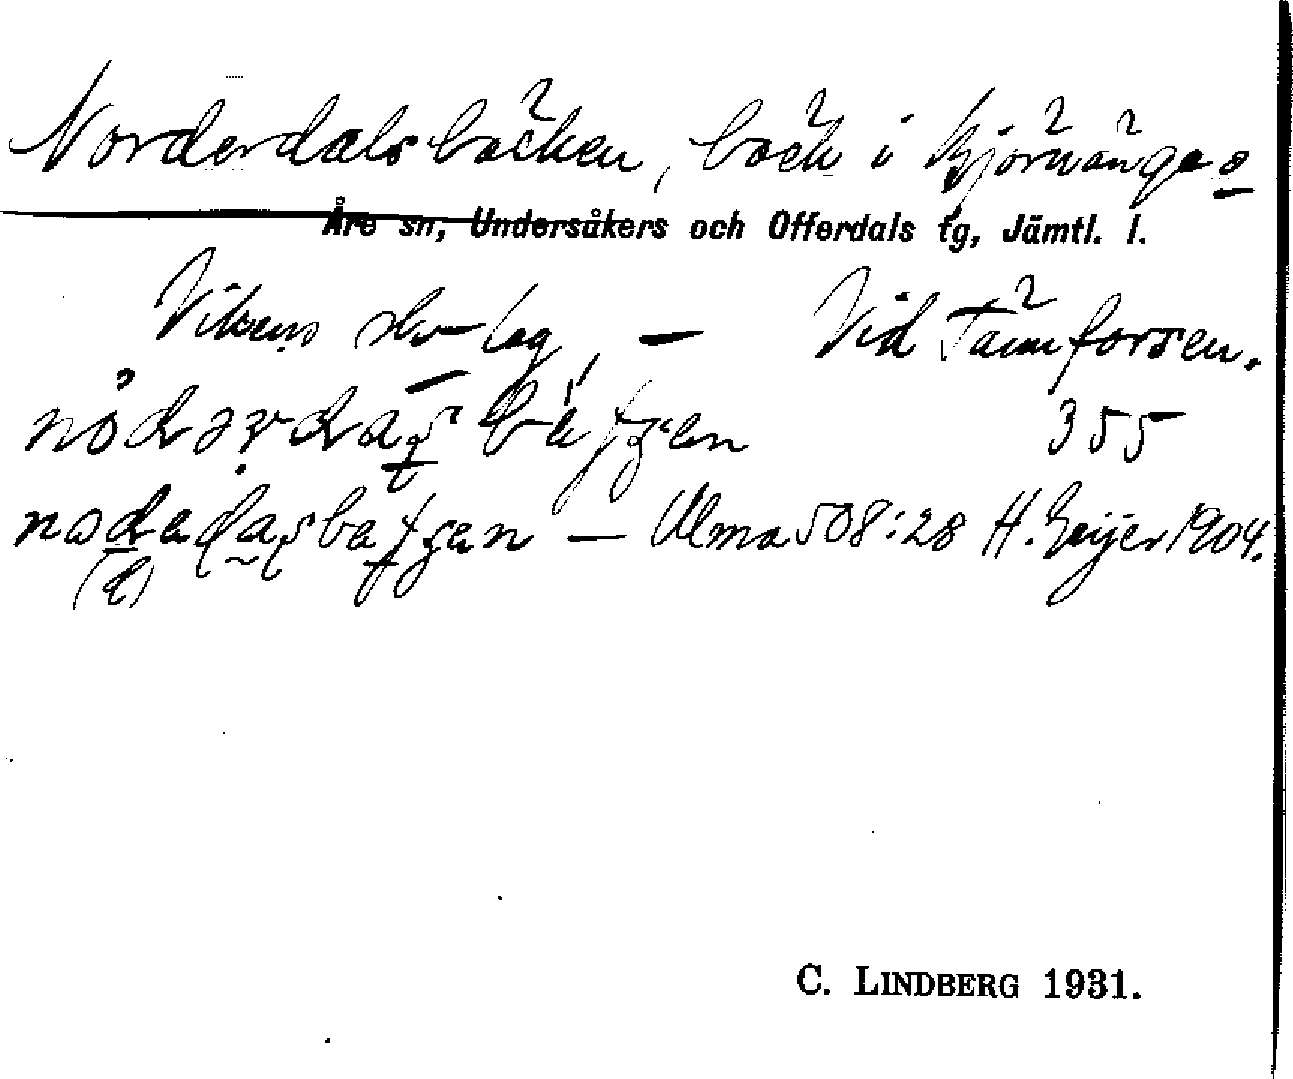 Norderdalsbäcken, bäck i Björnänges
Åre sn, Undersåkers och Offerdals tg, Jämtl. l.
Vikens skv-lag, – Vid Tännforsen.
355
– Ulma 508:28 H. Geijer 1904.
(d)
C. LINDBERG 1931.